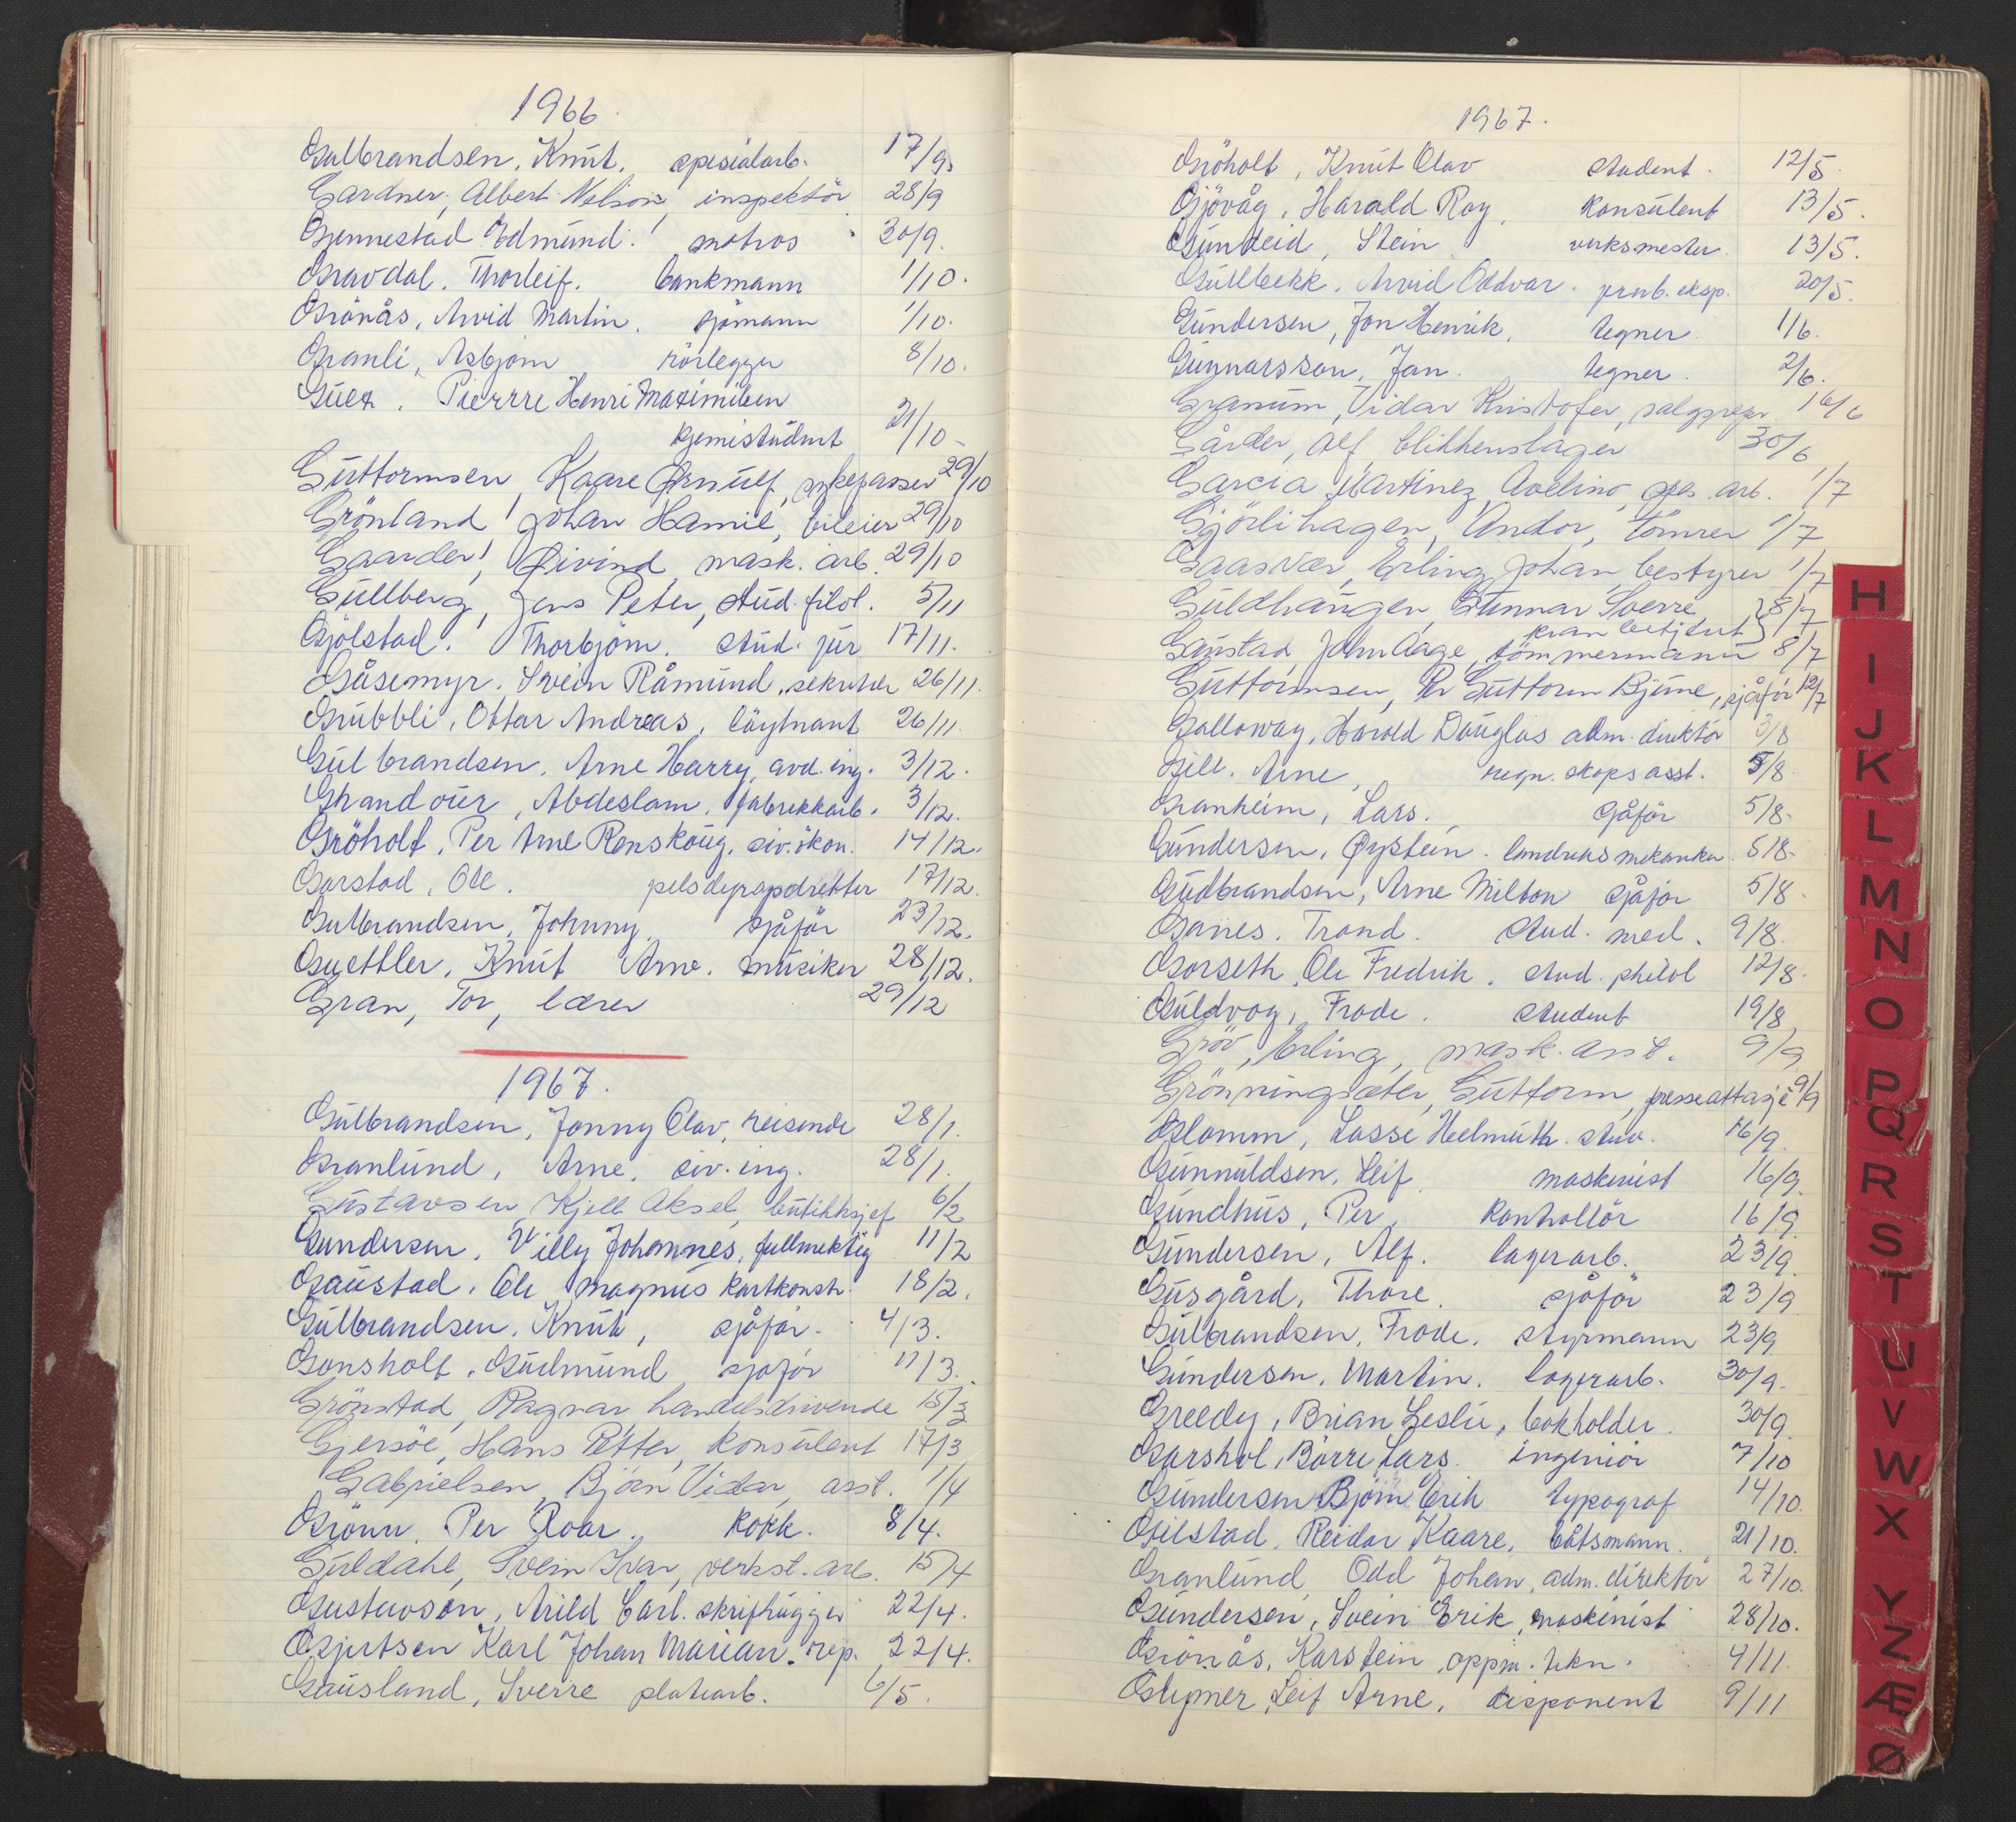 1966.
Gulbrandsen, Knut. spesialarb. 17/9.
Gardner, Albert Nelson, inspektör 28/9
Gjennestad Edmund. matros 30/9.
Gravdal. Thorleif. bankmann 1/10.
Grönås, Arvid Martin. sjömann 1/10.
Granli, Asbjörn rörlegger 8/10.
Guex. Pierrre Henri Maximilien
kjemistudent 21/10-
Guttormsen, Kaare Ørnulf, sykepasser 29/10
Grönland, Johan Hamil, bileier 29/10
Gaarder, Øivind, mask. arb. 29/10
Gullberg, Jens Peter, stud. filol. 5/11
Gjölstad. Thorbjörn. stud. jur 17/11.
Gåsemyr. Svein Råmund, sekretær 26/11.
Grubbli, Ottar Andreas, löytnant 26/11.
Gulbrandsen. Arne Harry, avd. ing. 3/12.
Ghandour, Abdeslam. fabrikkarb. 3/12.
Gröholt, Per Arne Renskoug. siv.ökon. 14/12.
Garstad, Ole. pelsdyroppdretter 17/12.
Gulbrandsen, Johnny. sjåför 23/12.
Guettler, Knut Arne. musiker 28/12.
Gran, Tor, lærer 29/12
1967.
Gulbrandsen, Jonny Olav, reisende 28/1.
Granlund, Arne. siv. ing. 28/1.
Gustavsen, Kjell Aksel, butikksjef 6/2
Gundersen. Villy Johannes, fullmektig 11/2
Gaustad. Ole Magnus kartkonstr. 18/2.
Gulbrandsen. Knut, sjåför. 4/3.
Gonsholt, Gudmund sjåför 11/3.
Grönstad, Ragnar handelsdrivende 15/3
Gjersöe, Hans Petter, konsulent 17/3
Gabrielsen, Björn Vidar, asst. 1/4
Grönn. Per Roar. kokk. 8/4.
Guldahl, Svein Ivar, verkst. arb. 15/4
Gustavson, Arild Carl. skrifthugger 22/4.
Gjertsen Karl Johan Marian. rep. 22/4.
Gausland, Sverre platearb. 6/5.
1967.
Gröholt, Knut Olav student. 12/5.
Gjövåg, Harald Roy. konsulent 13/5.
Gundeid, Stein verksmester. 13/5.
Gullbekk. Arvid Oddvar. 20/5.
Gundersen, Jan Henrik, tegner. 1/6.
Gunnarsson, Jan. tegner. 2/6.
Granum, Vidar Kristofer, 16/6
Gårder, Alf blikkenslager 30/6
Garcia Martinez, Avelino, spes. arb. 1/7
Gjörlihagen, Andor, tömrer 1/7
Gaasvær, Erling Johan, bestyrer 1/7
Guldhaugen, Gunnar Sverre } 8/7
kran betjent
Gaustad, John Aage, tömmermann 8/7
Guttormsen, Per Guttorm Bjerne, sjåför 12/7
Galloway, Harold Douglas adm. direktör 3/8
Gill. Arne, regn. skaps asst. 5/8.
Granheim, Lars. sjåför 5/8.
Gundersen, Øystein. landbruks mekaniker. 5/8.
Gudbrandsen, Arne Milton sjåför 5/8.
Ganes. Trond. stud. med. 9/8.
Gorseth, Ole Fredrik. stud. philol 12/8.
Guldvog, Frode. student 19/8.
Gröv, Erling, mask. asst. 9/9
Grönningsæter, Guttorm, presseattasjé 9/9
Glomm, Lasse Helmuth. stud. 16/9.
Gunnuldsen, Leif. maskinist 16/9.
Gundhus, Per. kontrollör 16/9.
Gundersen, Alf. lagerarb. 23/9.
Gusgård, Thore. sjåför 23/9.
Gulbrandsen, Frode. styrmann 23/9
Gundersen, Martin. lagerarb. 30/9.
Greedy, Brian Leslie, bokholder. 30/9.
Garshol, Börre Lars. ingeniör 7/10
Gundersen Björn Erik typograf 14/10.
Gilstad. Reidar Kaare. båtsmann. 21/10.
Granlund, Odd Johan, adm. direktör 27/10.
Gundersen, Svein Erik, maskinist 28/10.
Grönås, Karstein, oppm. tekn. 4/11.
Glymer, Leif Arne, disponent 9/11
H
I
J
K
L
M
N
O
P
Q
R
S
T
U
V
W
X
Y
Z
Æ
Ø